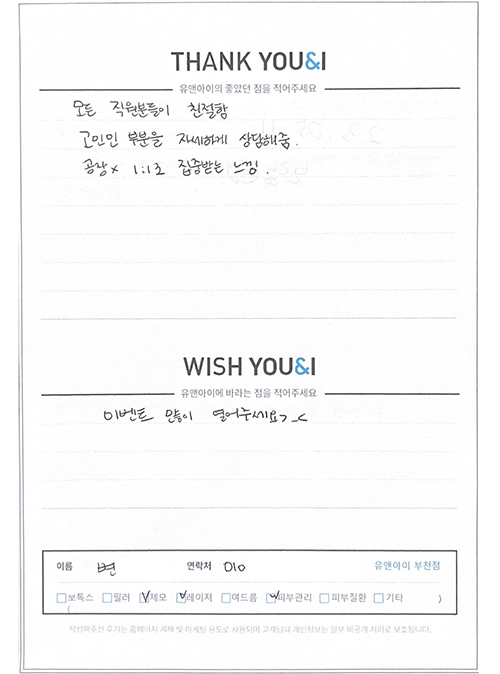 THANK YOU&I
유앤아이의 좋았던 점을 적어주세요
모든 직원분들이 친절함
고민인 부분을 자세하게 상담해줌.
공장x 1:1로 집중받는 느낌.
WISH YOU&I
유앤아이에 바라는 점을 적어주세요
이벤트 많이 열어주세요>_<
이름 변 연락처 010 유앤아이 부천점
보톡스 필러 제모 레이저 여드름 피부관리 피부질환 기타
( )
작성해주신 후기는 홈페이지 게재 및 마케팅 용도로 사용되며 고객님의 개인정보는 일부 비공개 처리로 보호됩니다.